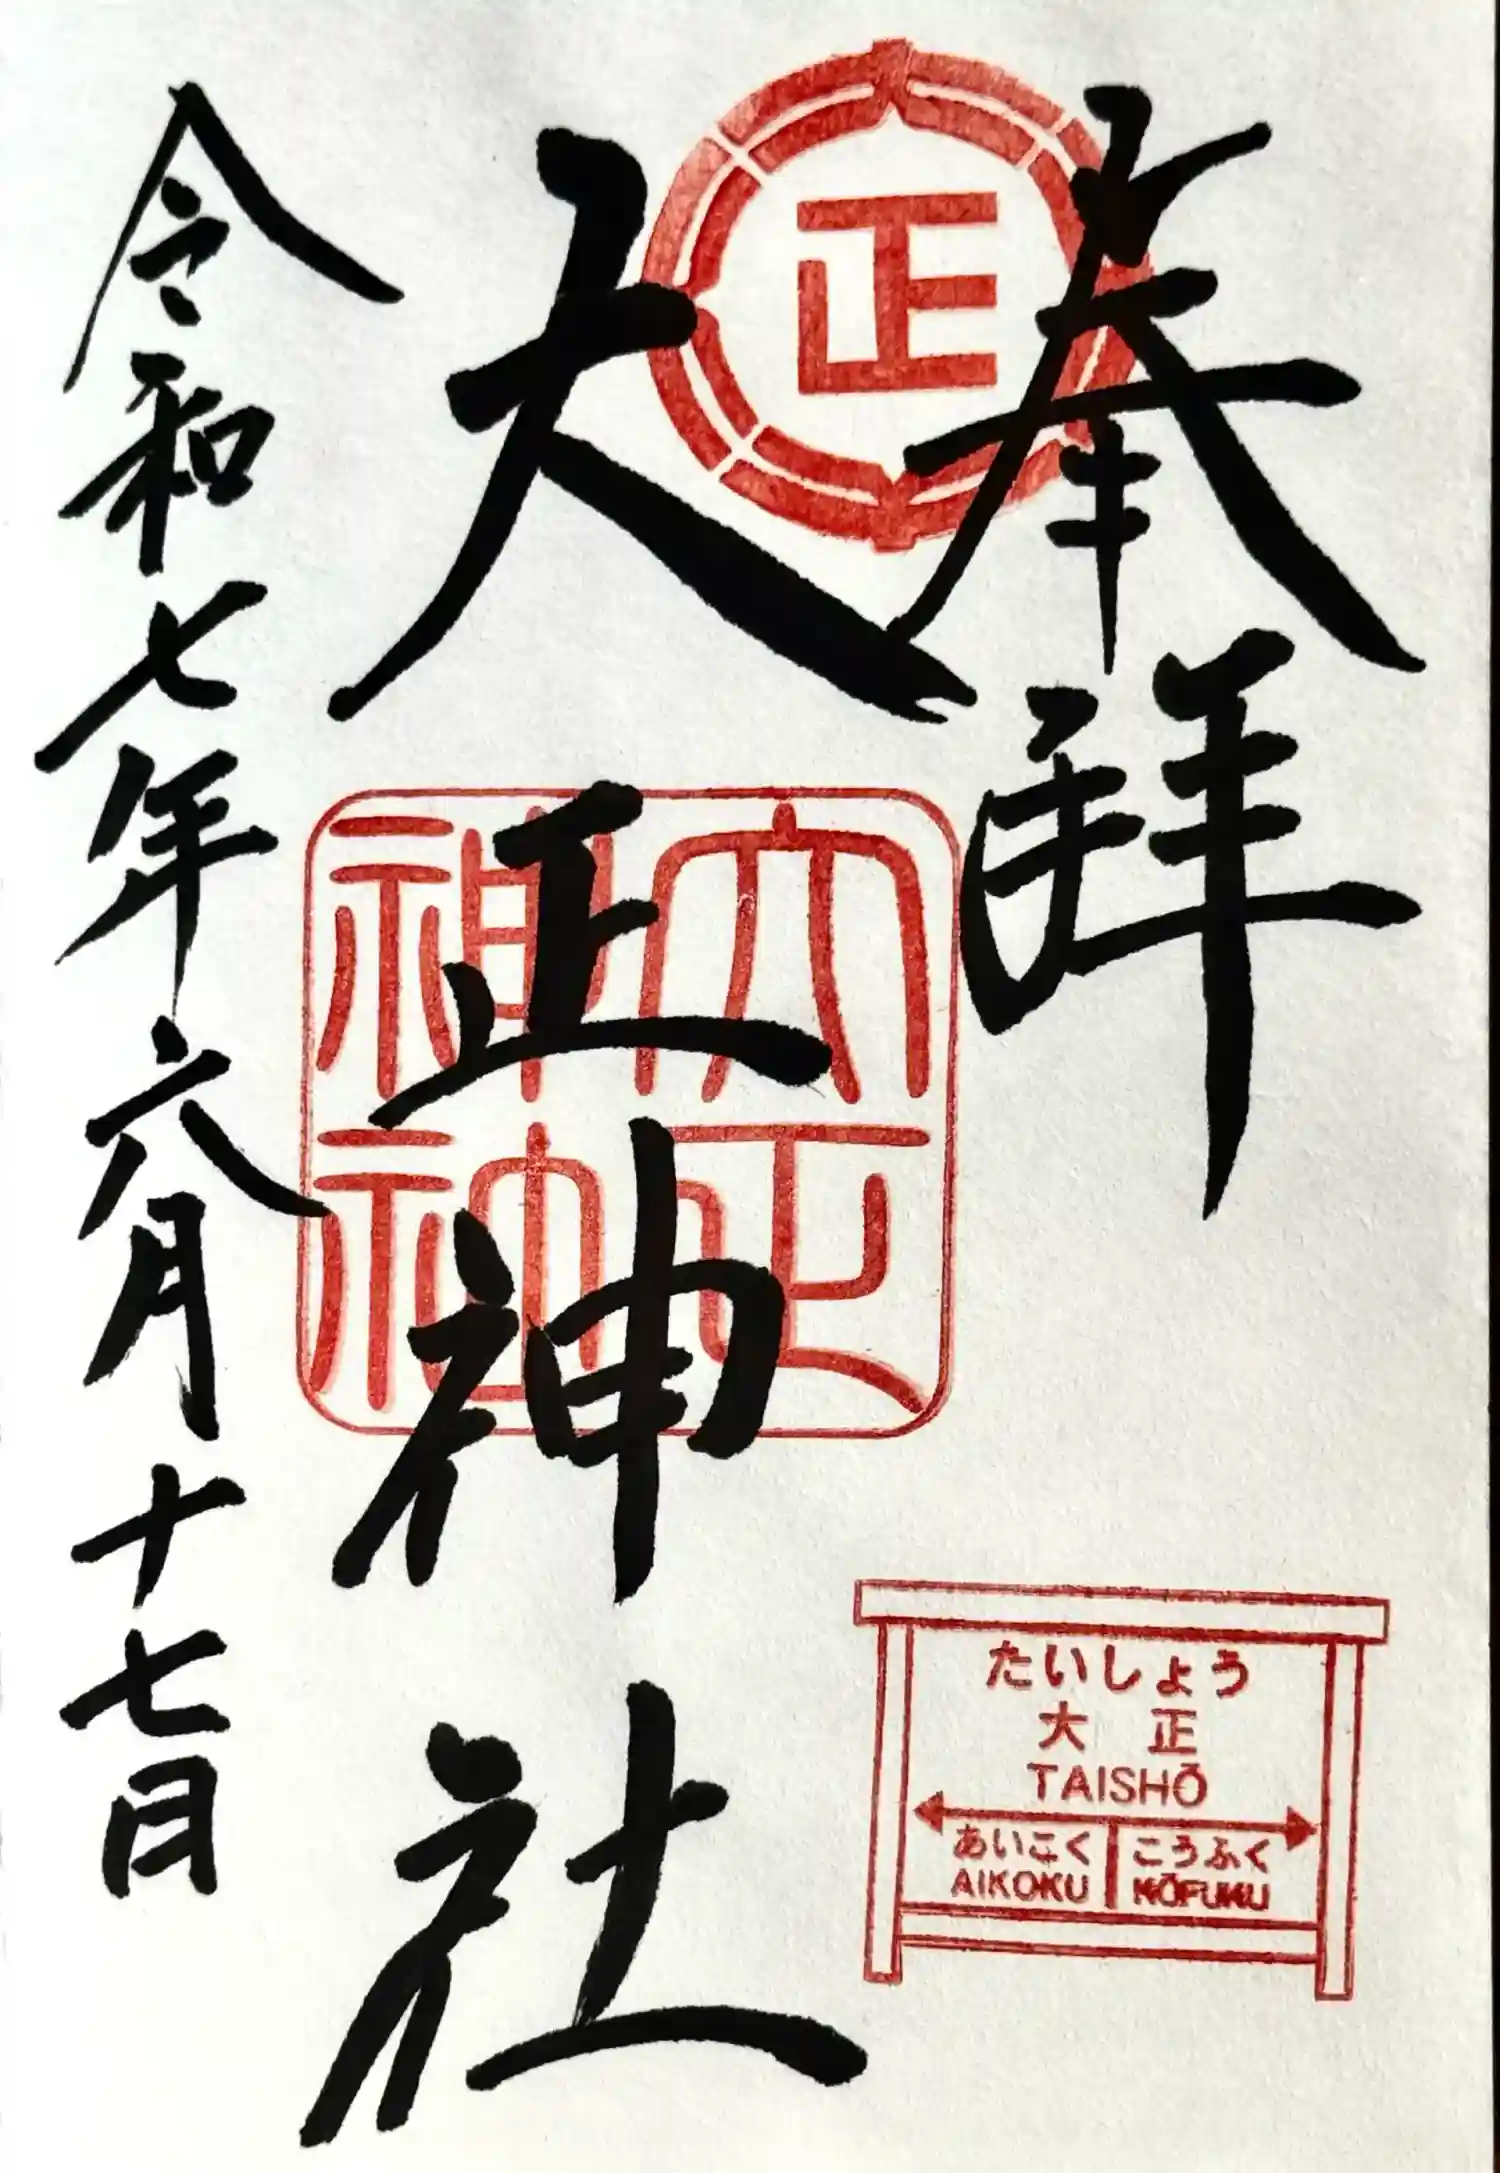 奉拜
正
大正神社
大正
神神
令和七年六月十七日
たいしょう
大正
TAISHŌ
あいこく こうふく
AIKOKU KŌFUKU